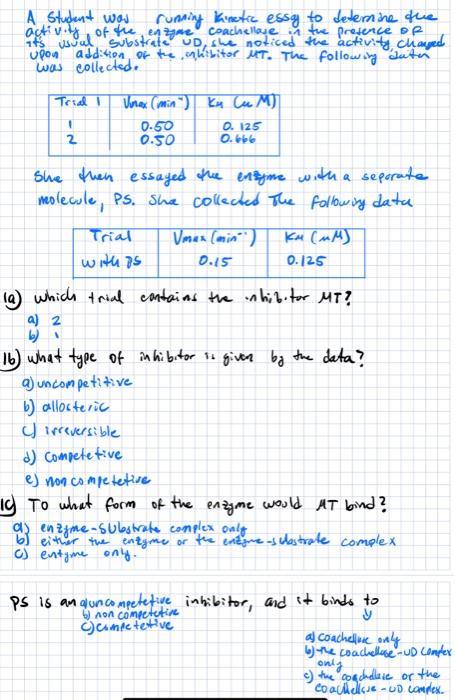 A Student was running kinetic essay to determine the
activity of the enzyme coachellase in the presence of
its usual substrate UD, she noticed the activity changed
upon addition of the inhibitor MT. The following data
was collected.
Trial 1 Vmax (min⁻) KM (μM)
1 0.50 0.125
2 0.50 0.666
She then essayed the enzyme with a seperate
molecule, PS. She collected The following data
Trial Vmax (min⁻¹) KM (μM)
with PS 0.15 0.125
1a) which trial contains the inhibitor MT?
a) 2
b) 1
1b) what type of inhibitor is given by the data?
a) uncompetitive
b) allosteric
c) irreversible
d) competetive
e) non competetive
1c) To what form of the enzyme would MT bind?
a) enzyme-substrate complex only
b) either the entyme or the enzyme-substrate complex
c) entyme only.
PS is an a) uncompetetive inhibitor, and it binds to
b) non competetive
c) competetive
a) coachellase only
b) the coachellase-UD complex
only
c) the coachellase or the
coachellase-UD complex.